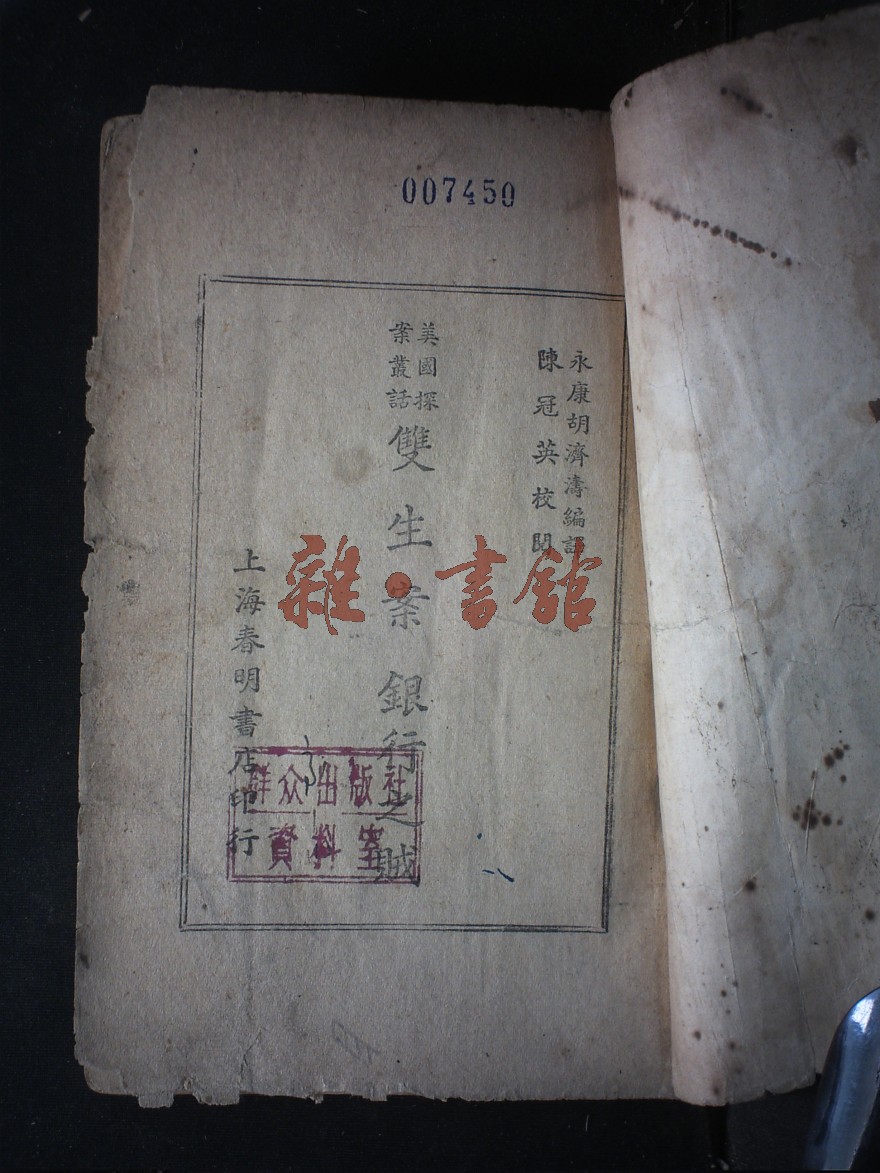 007450
永康胡濟濤編譯
陳冠英校閱
美國探
案叢話
雙生案銀行之賊
上海春明書店印行
群众出版社
資料室
雜·書館